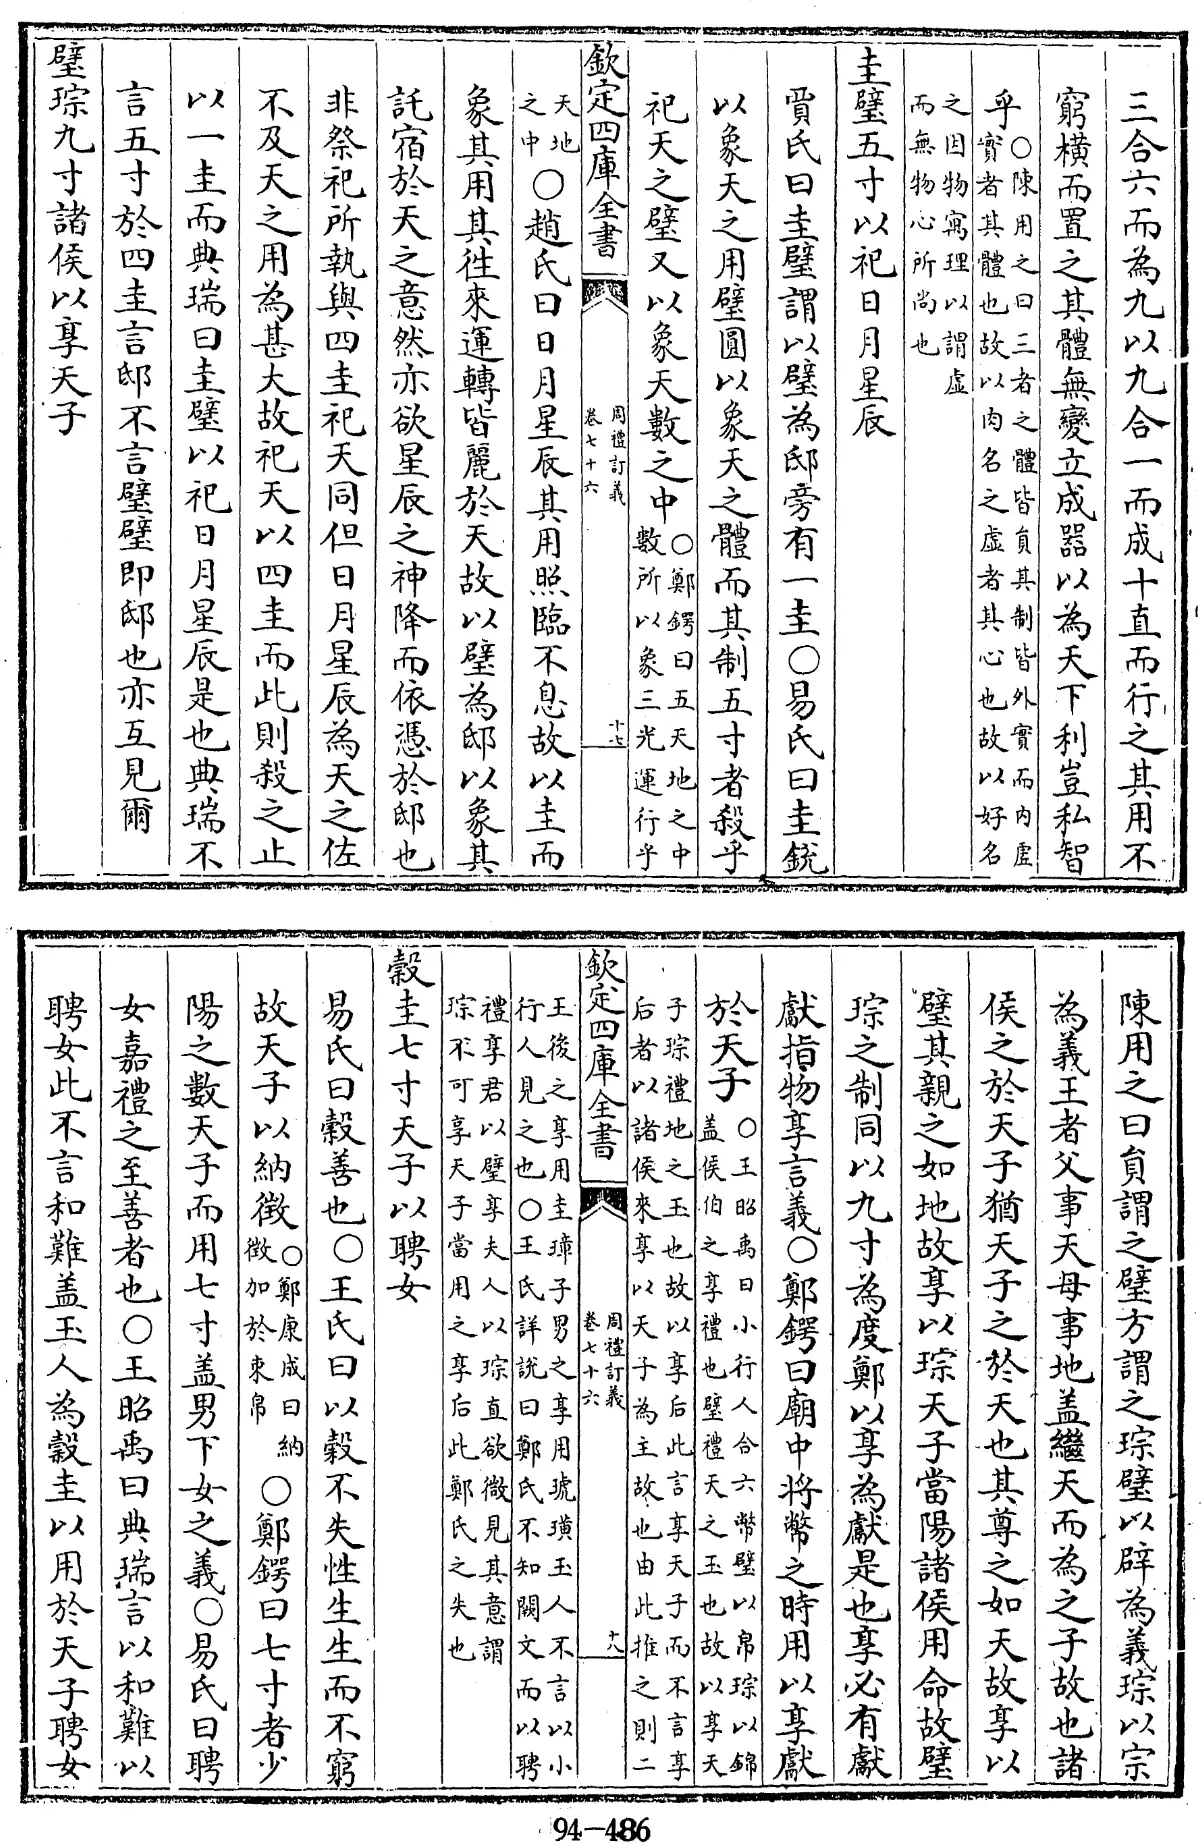 三合六而為九以九合一而成十直而行之其用不
窮橫而置之其體無變立成器以為天下利豈私智
乎○陳用之曰三者之體皆負其制皆外實而内虛
實者其體也故以肉名之虛者其心也故以好名
之因物寓理以謂虛
而無物心所尚也
圭璧五寸以祀日月星辰
賈氏曰圭璧謂以璧為邸旁有一圭○易氏曰圭銳
以象天之用璧圓以象天之體而其制五寸者殺乎
祀天之璧又以象天數之中○鄭鍔曰五天地之中
數所以象三光運行乎
欽定四庫全書
周禮訂義
卷七十六
十七
天地
之中○趙氏曰日月星辰其用照臨不息故以圭而
象其用其徃來運轉皆麗於天故以璧為邸以象其
託宿於天之意然亦欲星辰之神降而依憑於邸也
非祭祀所執與四圭祀天同但日月星辰為天之佐
不及天之用為甚大故祀天以四圭而此則殺之止
以一圭而典瑞曰圭璧以祀日月星辰是也典瑞不
言五寸於四圭言邸不言璧璧即邸也亦互見爾
璧琮九寸諸侯以享天子
陳用之曰負謂之璧方謂之琮璧以辟為義琮以宗
為義王者父事天母事地盖繼天而為之子故也諸
侯之於天子猶天子之於天也其尊之如天故享以
璧其親之如地故享以琮天子當陽諸侯用命故璧
琮之制同以九寸為度鄭以享為獻是也享必有獻
獻指物享言義○鄭鍔曰廟中將幣之時用以享獻
於天子○王昭禹曰小行人合六幣璧以帛琮以錦
盖侯伯之享禮也璧禮天之玉也故以享天
子琮禮地之玉也故以享后此言享天子而不言享
后者以諸侯來享以天子為主故也由此推之則二
欽定四庫全書
周禮訂義
卷七十六
十八
王後之享用圭璋子男之享用琥璜玉人不言以小
行人見之也○王氏詳說曰鄭氏不知闕文而以聘
禮享君以璧享夫人以琮直欲微見其意謂
琮不可享天子當用之享后此鄭氏之失也
穀圭七寸天子以聘女
易氏曰穀善也○王氏曰以穀不失性生生而不窮
故天子以納徴○鄭康成曰納
徴加於束帛○鄭鍔曰七寸者少
陽之數天子而用七寸盖男下女之義○易氏曰聘
女嘉禮之至善者也○王昭禹曰典瑞言以和難以
聘女此不言和難盖玉人為穀圭以用於天子聘女
94-486